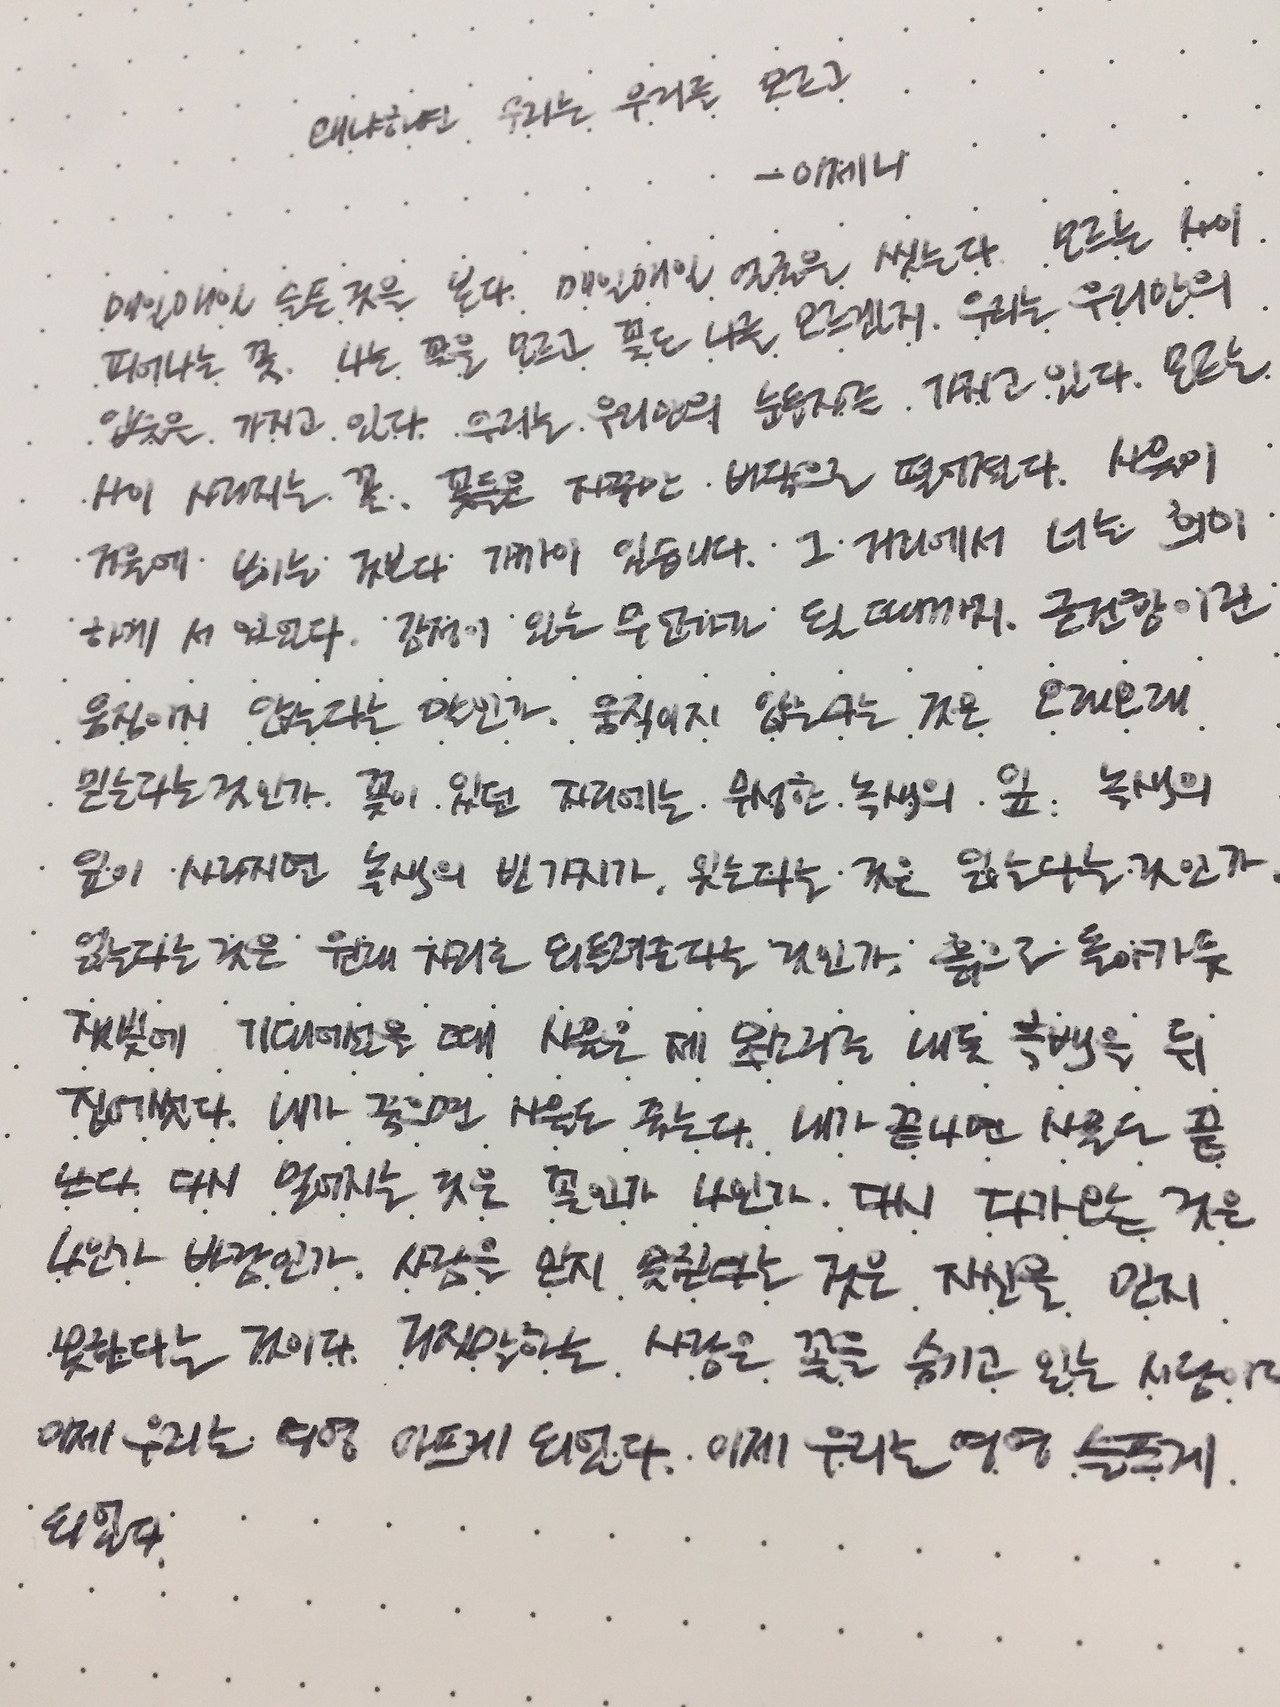 왜냐하면 우리는 우리를 모르고
- 이제니
매일매일 슬픈 것을 본다. 매일매일 얼굴을 씻는다. 모르는 사이
피어나는 꽃. 나는 꽃을 모르고 꽃도 나를 모르겠지. 우리는 우리만의
입술을 가지고 있다. 우리는 우리만의 눈동자를 가지고 있다. 모르는
사이 사라지는 꽃. 꽃들은 자꾸만 바닥으로 떨어졌다. 사물이
거울에 보이는 것보다 가까이 있습니다. 그 거리에서 너는 희미
하게 서 있었다. 감정이 있는 무언가가 될 때까지. 굳건함이란
움직이지 않는다는 말인가. 움직이지 않는다는 것은 오래오래
믿는다는 것인가. 꽃이 있던 자리에는 무성한 녹색의 잎. 녹색의
잎이 사라지면 녹색의 빈 가지가. 잊는다는 것은 잃는다는 것인가.
잃는다는 것은 원래 자리로 되돌려준다는 것인가. 흙으로 돌아가듯
잿빛에 기대에섰을 때 사물은 제 목소리를 내듯 흑백을 뒤
집어썼다. 내가 죽으면 사물도 죽는다. 내가 끝나면 사물도 끝
난다. 다시 멀어지는 것은 꽃인가 나인가. 다시 다가오는 것은
나인가 바람인가. 사람을 믿지 못한다는 것은 자신을 믿지
못한다는 것이다. 거짓말하는 사람은 꽃을 숨기고 있는 사람이다
이제 우리는 영영 아프게 되었다. 이제 우리는 영영 슬프게
되었다.